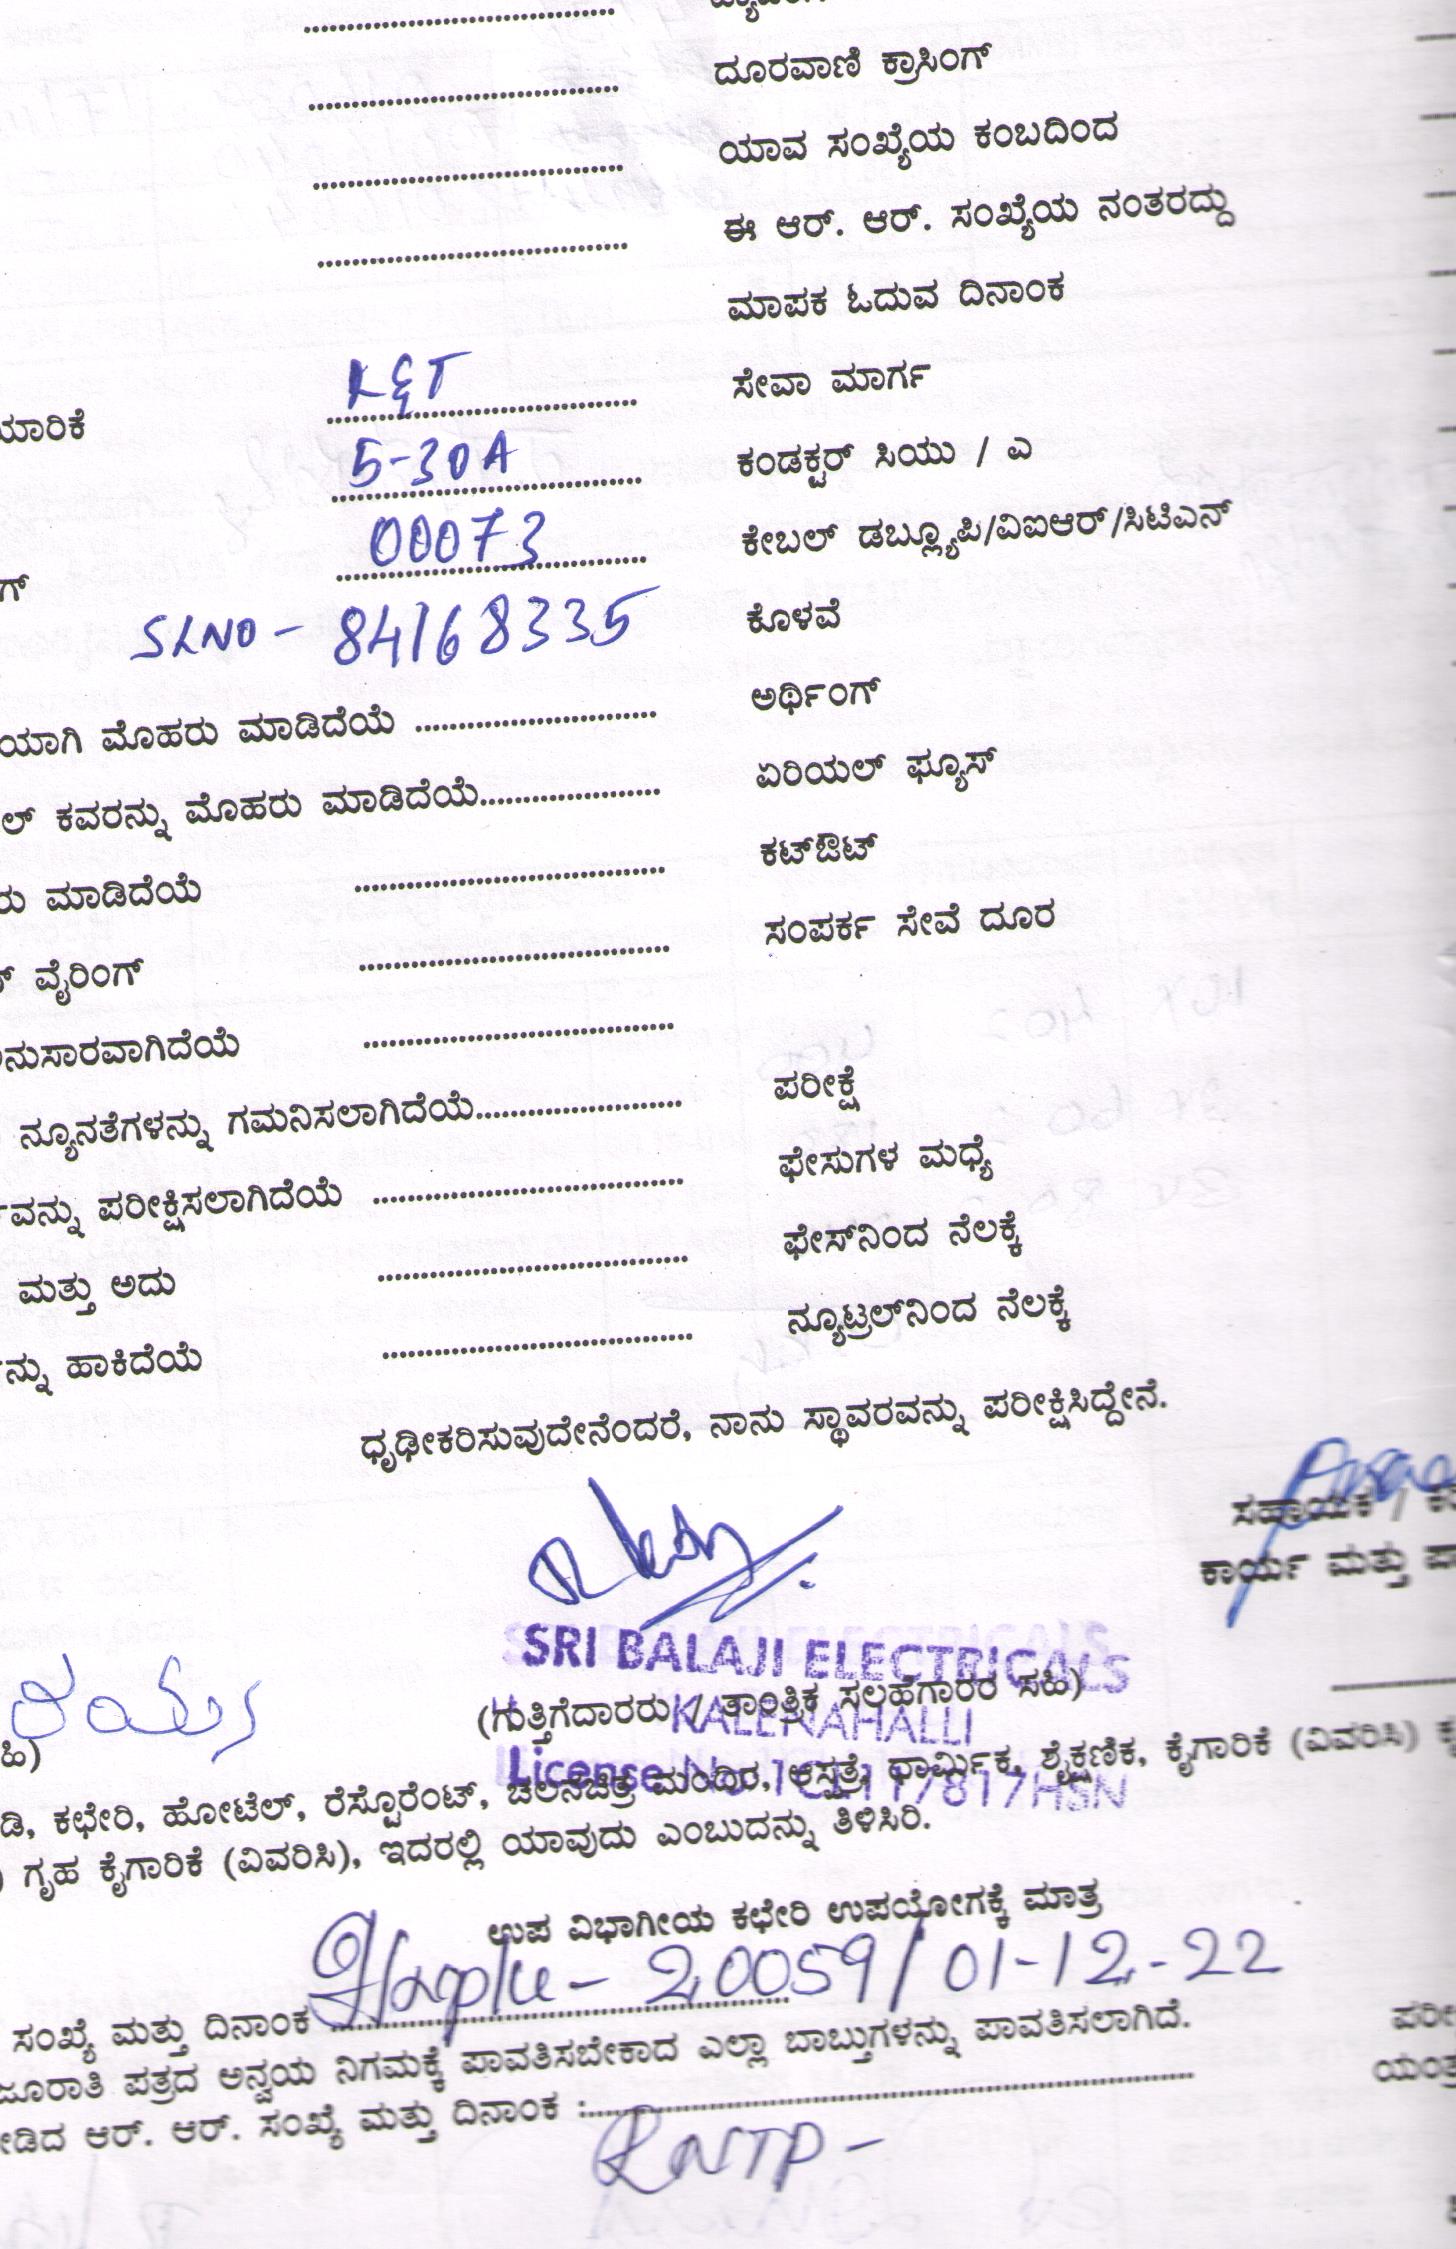 ದೂರವಾಣಿ ಕ್ರಾಸಿಂಗ್
ಯಾವ ಸಂಖ್ಯೆಯ ಕಂಬದಿಂದ
ಈ ಆರ್. ಆರ್. ಸಂಖ್ಯೆಯ ನಂತರದ್ದು
ಮಾಪಕ ಓದುವ ದಿನಾಂಕ
L&T ಸೇವಾ ಮಾರ್ಗ
5-30A ಕಂಡಕ್ಟರ್ ಸಿಯು / ಎ
00073 ಕೇಬಲ್ ಡಬ್ಲ್ಯೂಪಿ/ವಿಐಆರ್/ಸಿಟಿಎನ್
SLNO - 84168335 ಕೊಳವೆ
ಯಾಗಿ ಮೊಹರು ಮಾಡಿದೆಯೆ ಅರ್ಥಿಂಗ್
ಲ್ ಕವರನ್ನು ಮೊಹರು ಮಾಡಿದೆಯೆ ಏರಿಯಲ್ ಫ್ಯೂಸ್
ರು ಮಾಡಿದೆಯೆ ಕಟ್‌ಔಟ್
ವೈರಿಂಗ್ ಸಂಪರ್ಕ ಸೇವೆ ದೂರ
ನುಸಾರವಾಗಿದೆಯೆ
ನ್ಯೂನತೆಗಳನ್ನು ಗಮನಿಸಲಾಗಿದೆಯೆ ಪರೀಕ್ಷೆ
ವನ್ನು ಪರೀಕ್ಷಿಸಲಾಗಿದೆಯೆ ಫೇಸುಗಳ ಮಧ್ಯೆ
ಮತ್ತು ಅದು ಫೇಸ್‌ನಿಂದ ನೆಲಕ್ಕೆ
ನ್ನು ಹಾಕಿದೆಯೆ ನ್ಯೂಟ್ರಲ್‌ನಿಂದ ನೆಲಕ್ಕೆ
ಧೃಢೀಕರಿಸುವುದೇನೆಂದರೆ, ನಾನು ಸ್ಥಾವರವನ್ನು ಪರೀಕ್ಷಿಸಿದ್ದೇನೆ.
ಸಹಾಯಕ /
ಕಾರ್ಯ ಮತ್ತು
SRI BALAJI ELECTRICALS
(ಗುತ್ತಿಗೆದಾರರು / ತಾಂತ್ರಿಕ ಸಲಹೆಗಾರರ ಸಹಿ)
KALENAHALLI
License No
ಡಿ, ಕಛೇರಿ, ಹೋಟೆಲ್, ರೆಸ್ಟೊರೆಂಟ್, ಚಲನಚಿತ್ರ ಮಂದಿರ, ಆಸ್ಪತ್ರೆ, ಧಾರ್ಮಿಕ, ಶೈಕ್ಷಣಿಕ, ಕೈಗಾರಿಕೆ (ವಿವರಿಸಿ)
) ಗೃಹ ಕೈಗಾರಿಕೆ (ವಿವರಿಸಿ), ಇದರಲ್ಲಿ ಯಾವುದು ಎಂಬುದನ್ನು ತಿಳಿಸಿರಿ.
ಉಪ ವಿಭಾಗೀಯ ಕಛೇರಿ ಉಪಯೋಗಕ್ಕೆ ಮಾತ್ರ
ಸಂಖ್ಯೆ ಮತ್ತು ದಿನಾಂಕ 20059/01-12-22
ಜೂರಾತಿ ಪತ್ರದ ಅನ್ವಯ ನಿಗಮಕ್ಕೆ ಪಾವತಿಸಬೇಕಾದ ಎಲ್ಲಾ ಬಾಬ್ತುಗಳನ್ನು ಪಾವತಿಸಲಾಗಿದೆ.
ೀಡಿದ ಆರ್. ಆರ್. ಸಂಖ್ಯೆ ಮತ್ತು ದಿನಾಂಕ :